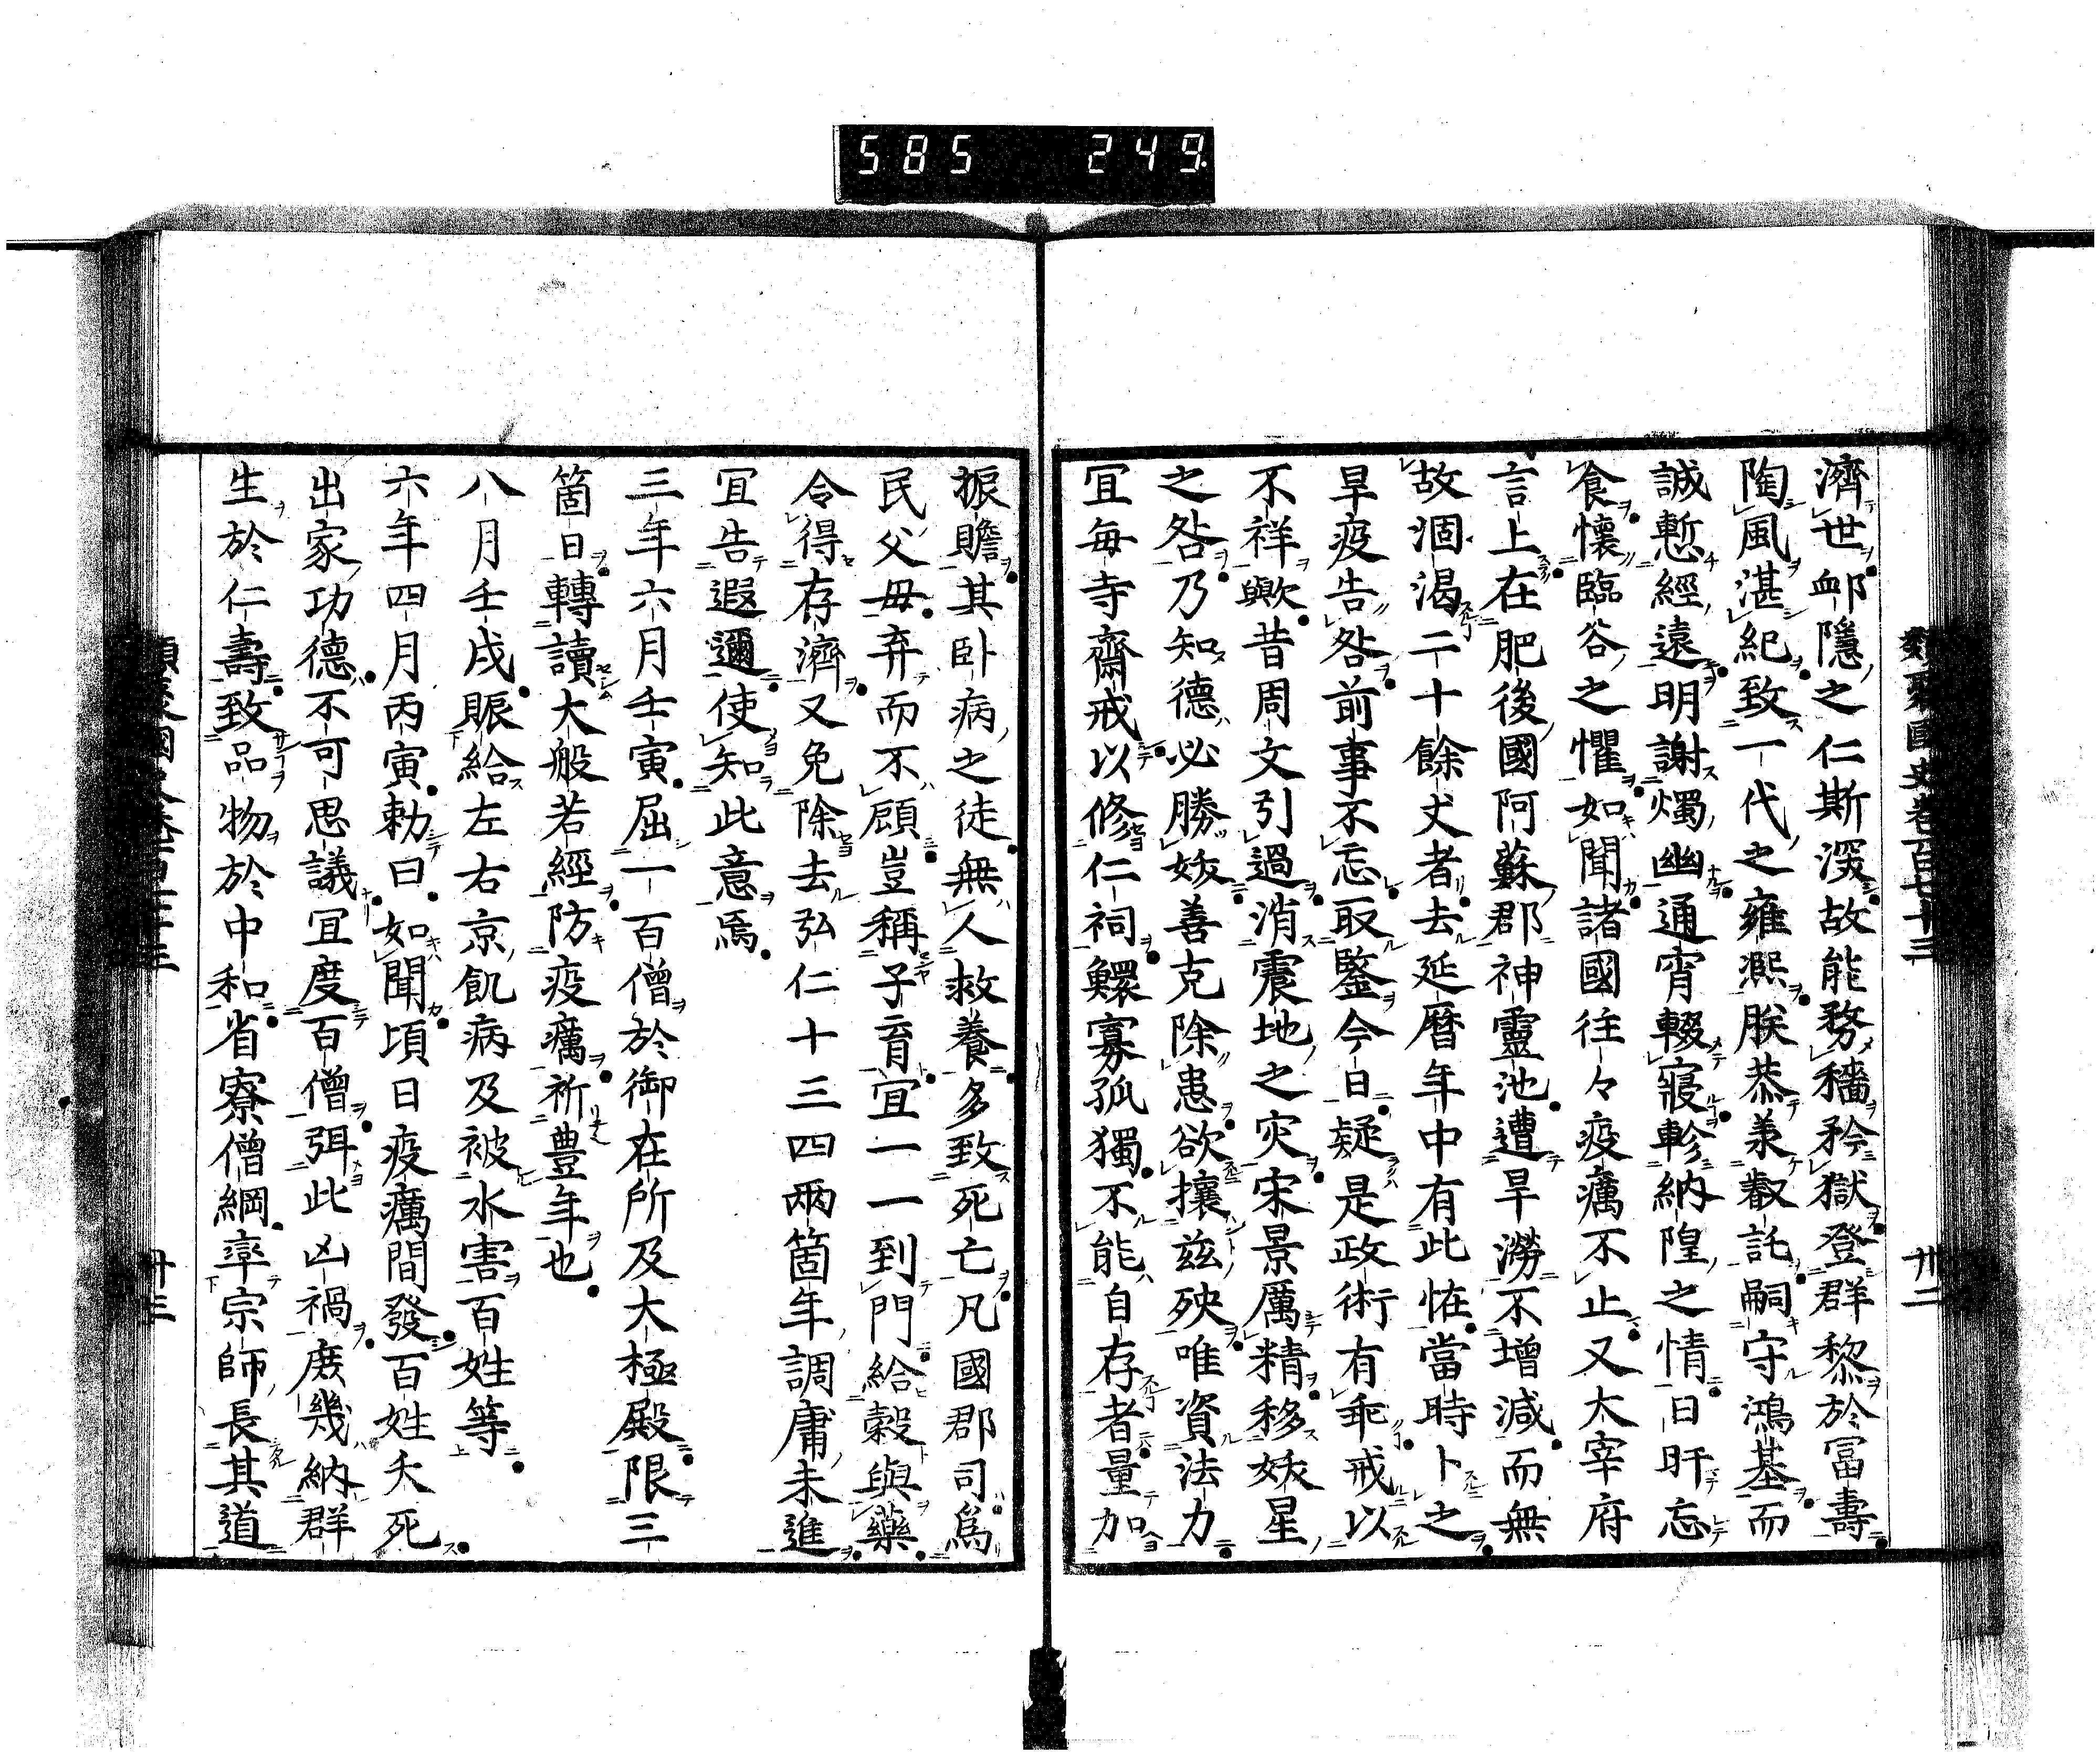 585 249
類聚國史卷百七十三 卅二
濟世䘏隱之仁斯深故能務穡矜獄登群黎於冨壽
陶風湛紀致一代之雍熈朕恭兼叡託嗣守鴻基而
誠慙經遠明謝燭幽通宵輟寢軫納隍之情日旰忘
食懷臨谷之懼如聞諸國往々疫癘不止又大宰府
言上在肥後國阿蘇郡神靈池遭旱澇不增減而無
故涸渴二十餘丈者去延曆年中有此恠當時卜之
旱疫告咎前事不忘取鑒今日疑是政術有乖戒以
不祥歟昔周文引過消震地之灾宋景厲精移妖星
之咎乃知德必勝妖善克除患欲攘兹殃唯資法力
冝每寺齋戒以修仁祠鰥寡孤獨不能自存者量加
振贍其卧病之徒無人救養多致死亡凡國郡司爲
民父母弃而不顧豈稱子育冝一一到門給穀與藥
令得存濟又免除去弘仁十三四兩箇年調庸未進
冝告遐邇使知此意焉
三年六月壬寅屈一百僧於御在所及大極殿限三
箇日轉讀大般若經防疫癘祈豊年也
八月壬戌賑給左右京飢病及被水害百姓等
六年四月丙寅勅曰如聞頃日疫癘間發百姓夭死
出家功德不可思議冝度百僧弭此凶禍庻幾納群
生於仁壽致品物於中和省寮僧綱率宗師長其道
卅三